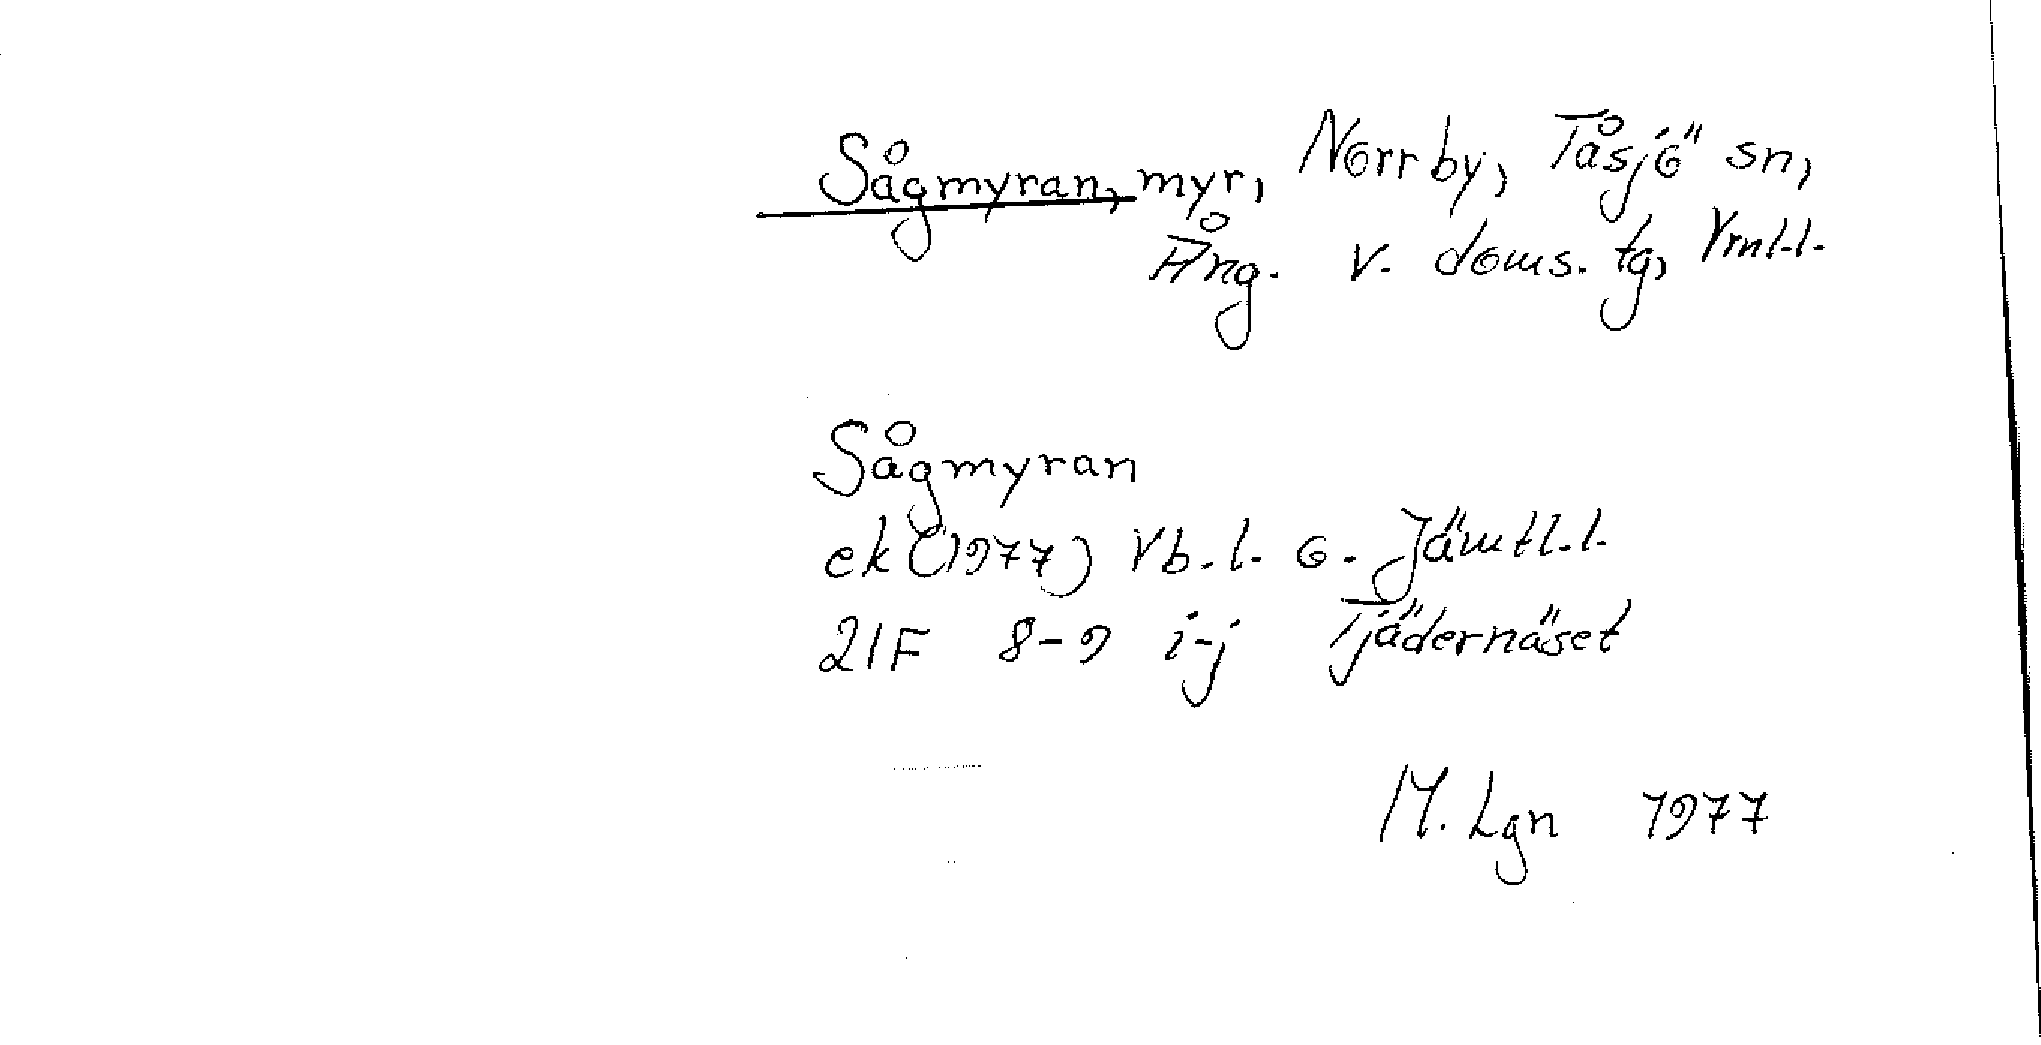 Sågmyran, myr, Norrby, Tåsjö sn,
Ång. v. doms. tg, Vrnl.l.
Sågmyran
ek (1977) Vb.l. o. Jämtl.l.
21F 8-9 i-j Tjädernäset
M. Lgn 1977